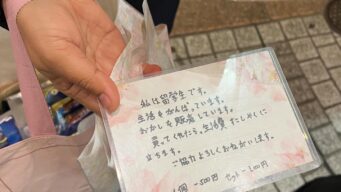 私は留学生です。
生活をがんばっています。
おかしを販売しています。
買ってくれたら、生活費のたしやくに
立ちます。
ご協力よろしくおねがいします。
500円 セット